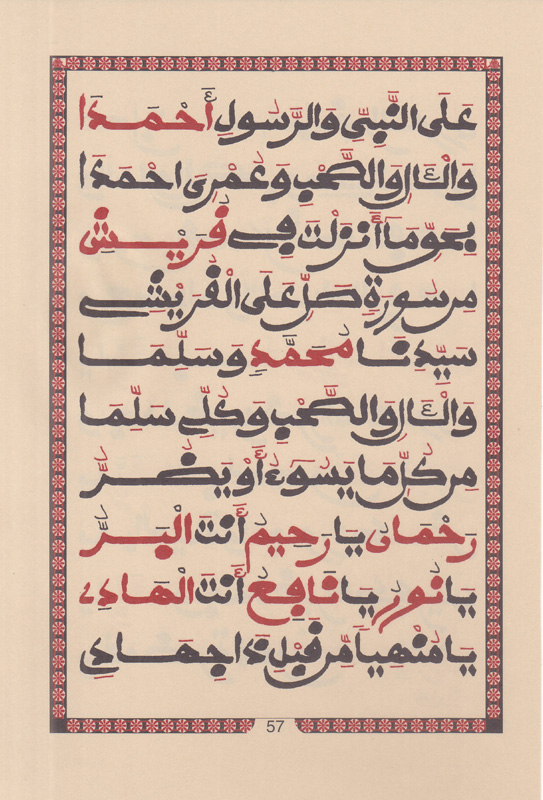 عَلَى النَّبِيِّ وَالرَّسُولِ أَحْمَدَا
وَالْآلِ وَالصَّحْبِ وَعُمْرِيَ احْمَدَا
بِحَقِّ مَا أَنْزَلْتَ فِي قُرَيْشِ
مِن سُورَةٍ صَلِّ عَلَى الْقُرَيْشِي
سَيِّدِنَا مُحَمَّدٍ وَسَلِّمَا
وَالْآلِ وَالصَّحْبِ وَكُلِّي سَلِّمَا
مِن كُلِّ مَا يَسُوءُ أَوْ يَضُرُّ
رَحْمَانُ يَا رَحِيمُ أَنْتَ الْبَرُّ
يَا نُورُ يَا نَافِعُ أَنْتَ الْهَادِي
يَا مُنْهِيًا مِّن قَبْلِ ذَا جِهَادِي
57